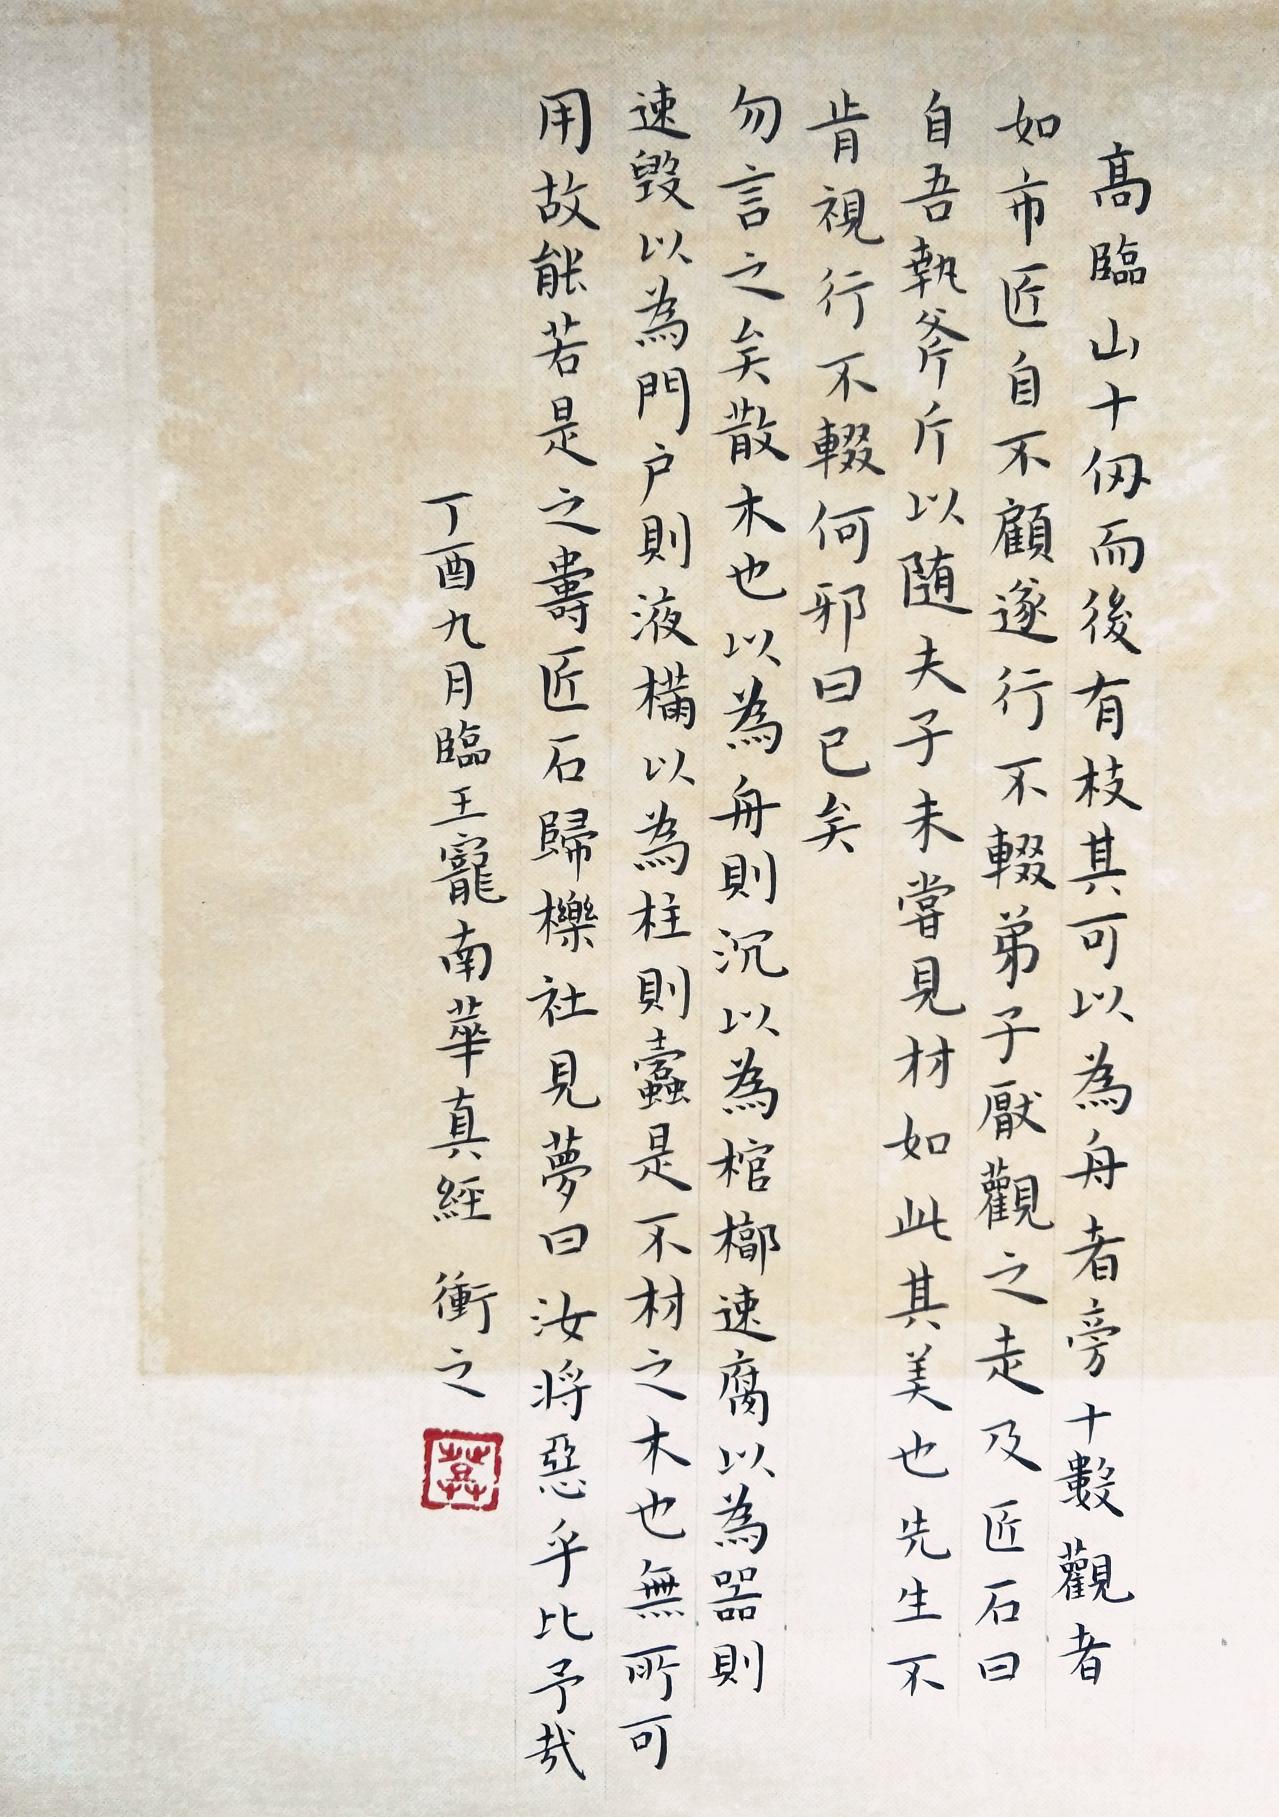 高臨山十仭而後有枝其可以為舟者旁十數觀者
如市匠自不顧遂行不輟弟子厭觀之走及匠石曰
自吾執斧斤以随夫子未嘗見材如此其美也先生不
肯視行不輟何邪曰已矣
勿言之矣散木也以為舟則沉以為棺槨速腐以為器則
速毀以為門户則液樠以為柱則蠹是不材之木也無所可
用故能若是之壽匠石歸櫟社見夢曰汝将惡乎比予哉
丁酉九月臨王寵南華真經 衝之